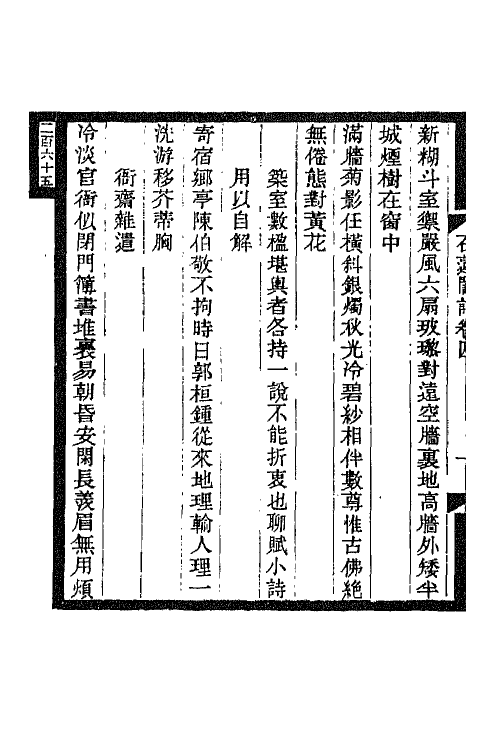 新糊斗室禦嚴風六扇玻瓈對遠空牆裏地高牆外矮半
城煙樹在窗中
滿牆菊影任橫斜銀燭秋光冷碧紗相伴數尊惟古佛絕
無倦態對黃花
築室數楹堪輿者各持一說不能折衷也聊賦小詩
用以自解
寄宿鄉亭陳伯敬不拘時日郭桓鍾從來地理輸人理一
洗游移芥蒂胸
衙齋雜遣
冷淡官衙似閉門簿書堆裏易朝昏安閑長羨眉無用煩
二百六十五